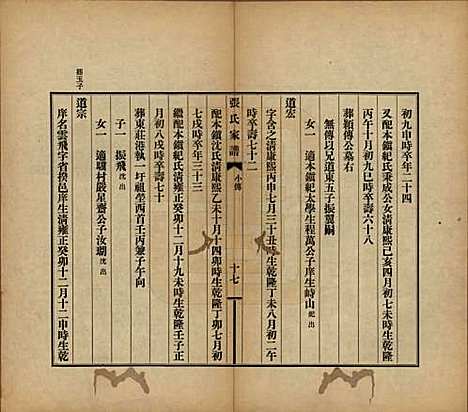 初九申時卒年二十四
又配本鎮紀氏秉成公女清康熙己亥四月初七未時生乾隆
丙午十月初九巳時卒壽六十八
葬穎傳公墓右
無傳以兄道東五子振翼嗣
女一 適本鎮紀太學生程萬公子庠生峙山 紀出
道宏
字含之清康熙丙申七月三十丑時生乾隆丁未八月初二午
時卒壽七十二
配本鎮沈氏清康熙乙未十月十四卯時生乾隆丁卯七月初
七戌時卒年三十三
繼配本鎮紀氏清雍正癸卯十二月十九未時生乾隆壬子正
月初八戌時卒壽七十
葬東莊港執一圩祖塋西首壬丙兼子午向
子一 振飛 沈出
女一 適驥村嚴星齋公子汝瑚 沈出
道宗
庠名雲飛字省揆邑庠生清雍正癸卯十二月十二申時生乾
張氏家譜
小傳
十七
玉子